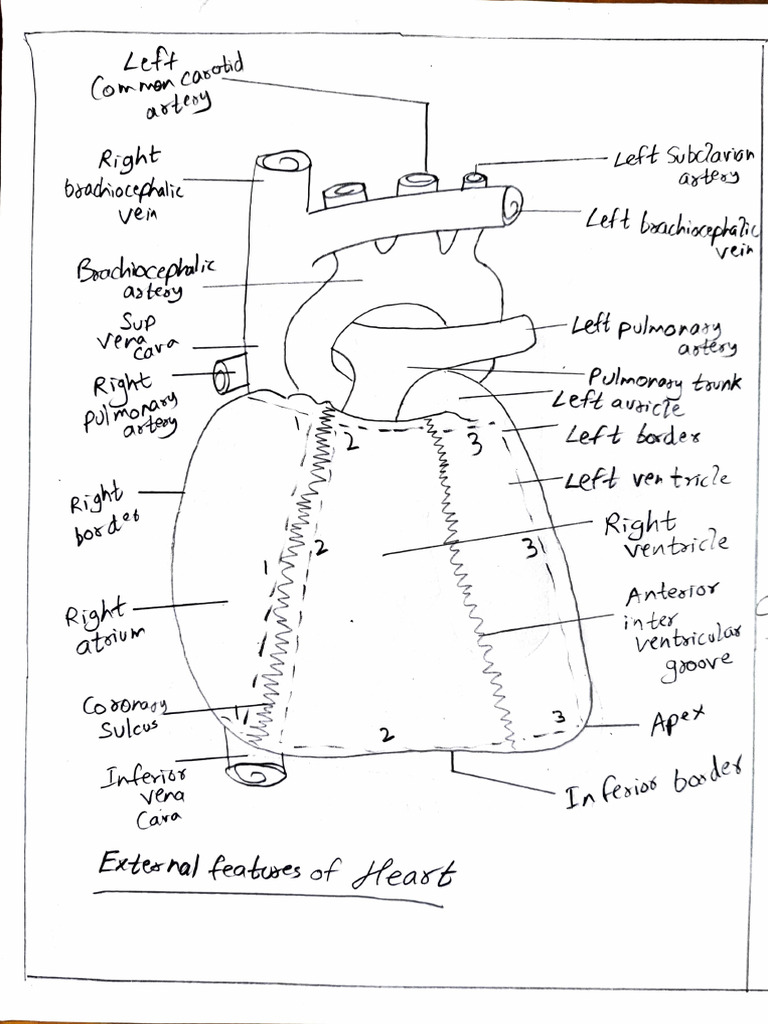 Left
Common carotid
artery
Right
brachiocephalic
vein
Brachiocephalic
artery
Sup
vena
cava
Right
pulmonary
artery
Right
border
Right
atrium
Coronary
Sulcus
Inferior
vena
Cava
Left Subclavian
artery
Left brachiocephalic
vein
Left pulmonary
artery
Pulmonary trunk
Left auricle
Left border
Left ventricle
Right
ventricle
Anterior
inter
ventricular
groove
Apex
Inferior border
1
2
3
1
2
3
1
2
3
External features of Heart